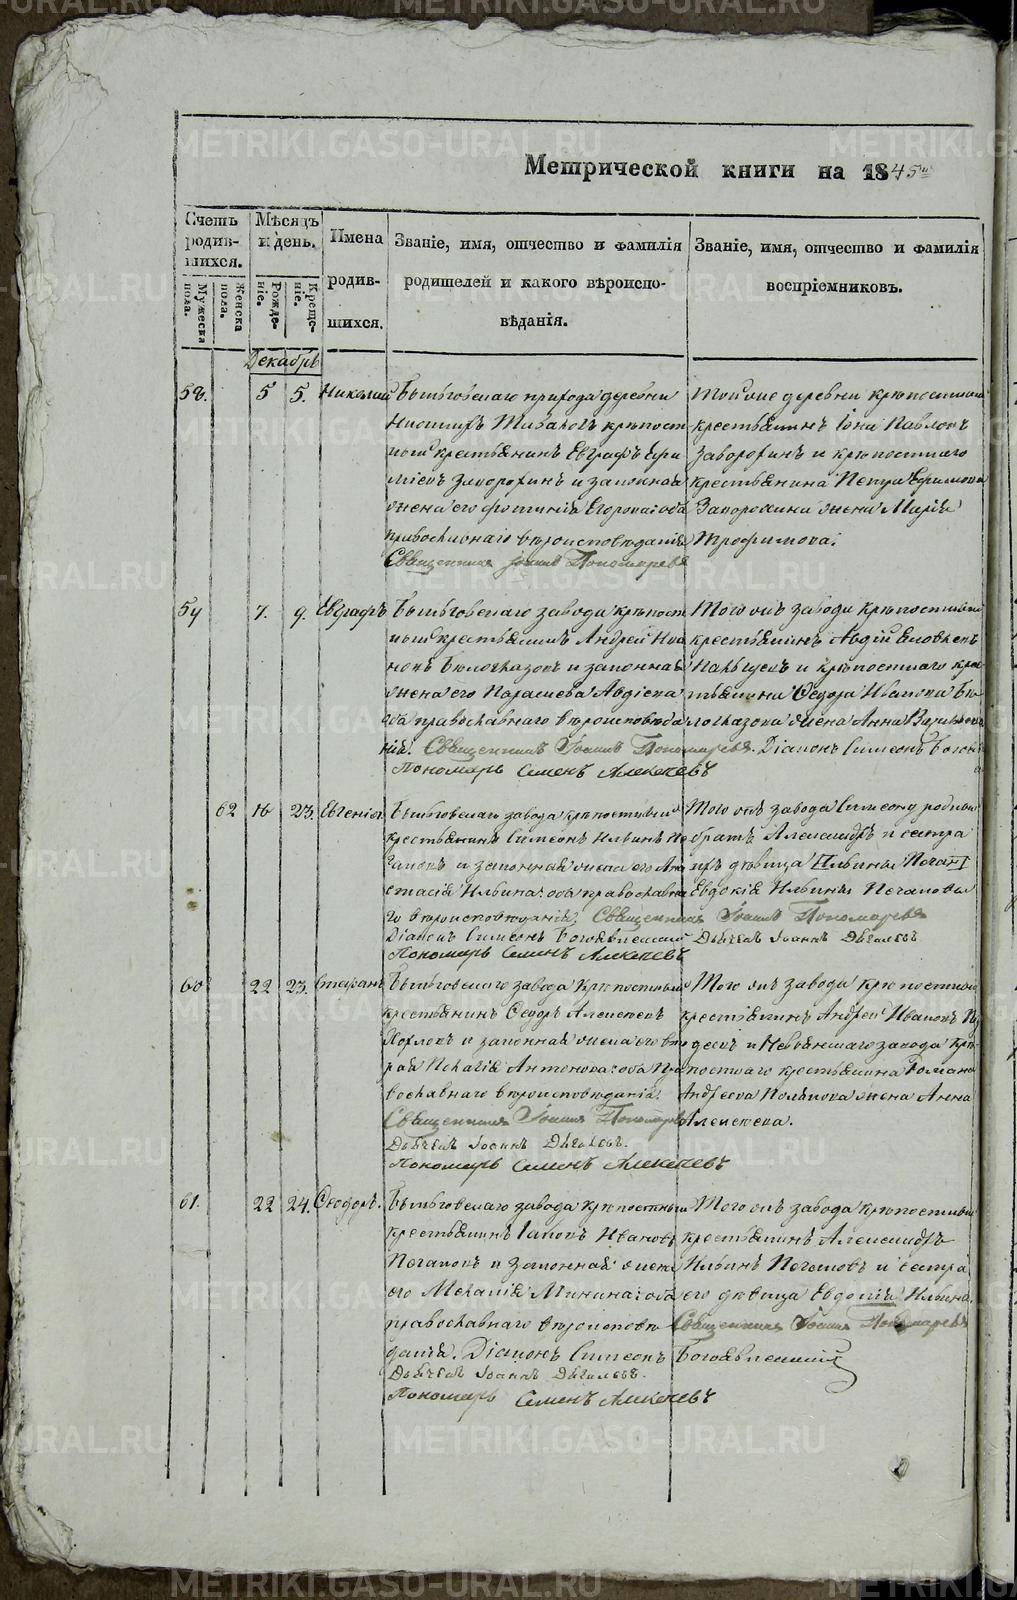 Метрической книги на 1845й
Счетъ родив-шихся.
Мужеска пола.
Женска пола.
Мѣсяцъ и день.
Рожде-ніе.
Креще-ніе.
Имена родив-шихся.
Званіе, имя, отчество и фамилія
родителей и какого вѣроиспо-
вѣданія.
Званіе, имя, отчество и фамилія
воспріемниковъ.
Декабрь
58. 5 5. Николай
прихода деревни
крѣпост
крестьянинъ Евграфъ
и законная
жена его Фотинія Егорова: оба
православнаго вѣроисповѣданія
Священникъ Іоаннъ Пономаревъ
Той же деревни крѣпостный
крестьянинъ Іона Павловъ
и крѣпостнаго
крестьянина Петра Ефимова
жена Марія
Трофимова.
59 7. 9. Евграфъ
завода крѣпост
ный крестьянинъ Андрей Ива
новъ и законная
жена его Параскева Авдіева
оба православнаго вѣроисповѣда
нія. Священникъ Іоаннъ Пономаревъ. Діаконъ Симеонъ
Пономарь Семенъ Алексѣевъ
Того жъ завода крѣпостный
крестьянинъ Авдій
и крѣпостнаго кре
стьянина Ѳедора Иванова
жена Анна
62 16 23. Евгенія
завода крѣпостный
крестьянинъ Симеонъ Ильинъ По
таповъ и законная жена его Ана
стасія Ильина: оба православна
го вѣроисповѣданія. Священникъ Іоаннъ Пономаревъ
Діаконъ Симеонъ Богоявленскій Дьячекъ Іоаннъ Дягилевъ
Пономарь Семенъ Алексѣевъ
Того жъ завода Симеону родный
братъ Александръ и сестра
ихъ дѣвица Ильины
Евдокія Ильины Потаповы
60 22 23. Стефанъ
завода крѣпостный
крестьянинъ Ѳедоръ Алексѣевъ
и законная жена его
Пелагія Антонова: оба пра
вославнаго вѣроисповѣданія.
Священникъ Іоаннъ Пономаревъ
Дьячекъ Іоаннъ Дягилевъ.
Пономарь Семенъ Алексѣевъ
Того жъ завода крѣпостный
крестьянинъ Андрей Ивановъ
и Невьянскаго завода крѣ
постнаго крестьянина Романа
Андреева жена Анна
Алексѣева.
61. 22 24. Ѳеодоръ.
завода крѣпостный
крестьянинъ Іаковъ Ивановъ
Потаповъ и законная жена
его Меланія Минина: оба
православнаго вѣроисповѣ
данія. Діаконъ Симеонъ Богоявленскій
Дьячекъ Іоаннъ Дягилевъ.
Пономарь Семенъ Алексѣевъ
Того жъ завода крѣпостный
крестьянинъ Александръ
Ильинъ Потаповъ и сестра
его дѣвица Евдокія Ильина.
Священникъ Іоаннъ Пономаревъ
METRIKI.GASO-URAL.RU